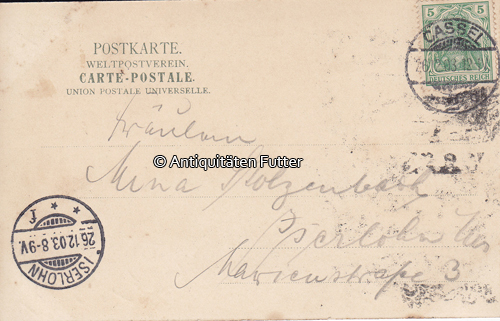 POSTKARTE.
WELTPOSTVEREIN.
CARTE-POSTALE.
UNION POSTALE UNIVERSELLE.
5 5
DEUTSCHES REICH
CASSEL
Fräulein
© Antiquitäten Futter
Mina Holzenbach
Iserlohn
Marienstraße 3
ISERLOHN
26.12.03.8-9V.
J